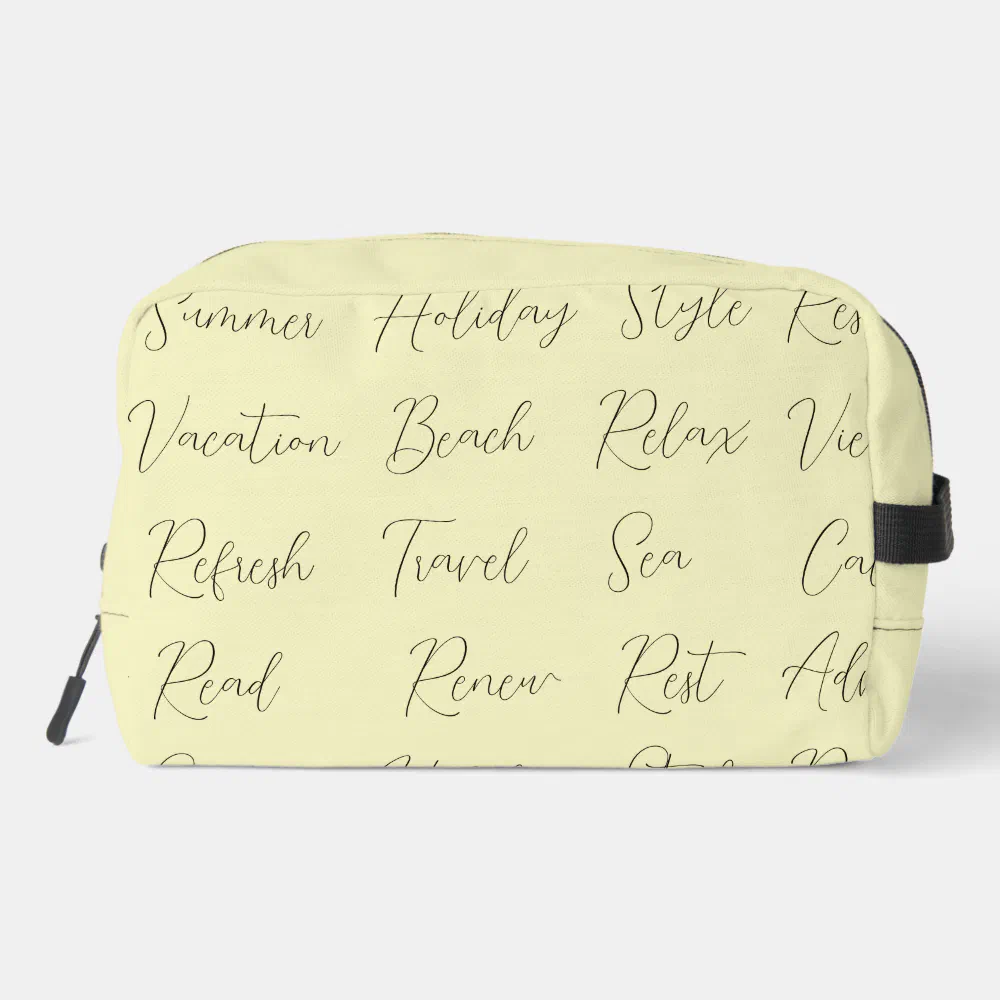 Summer Holiday Style Res
Vacation Beach Relax Vie
Refresh Travel Sea Cal
Read Renew Rest Adv